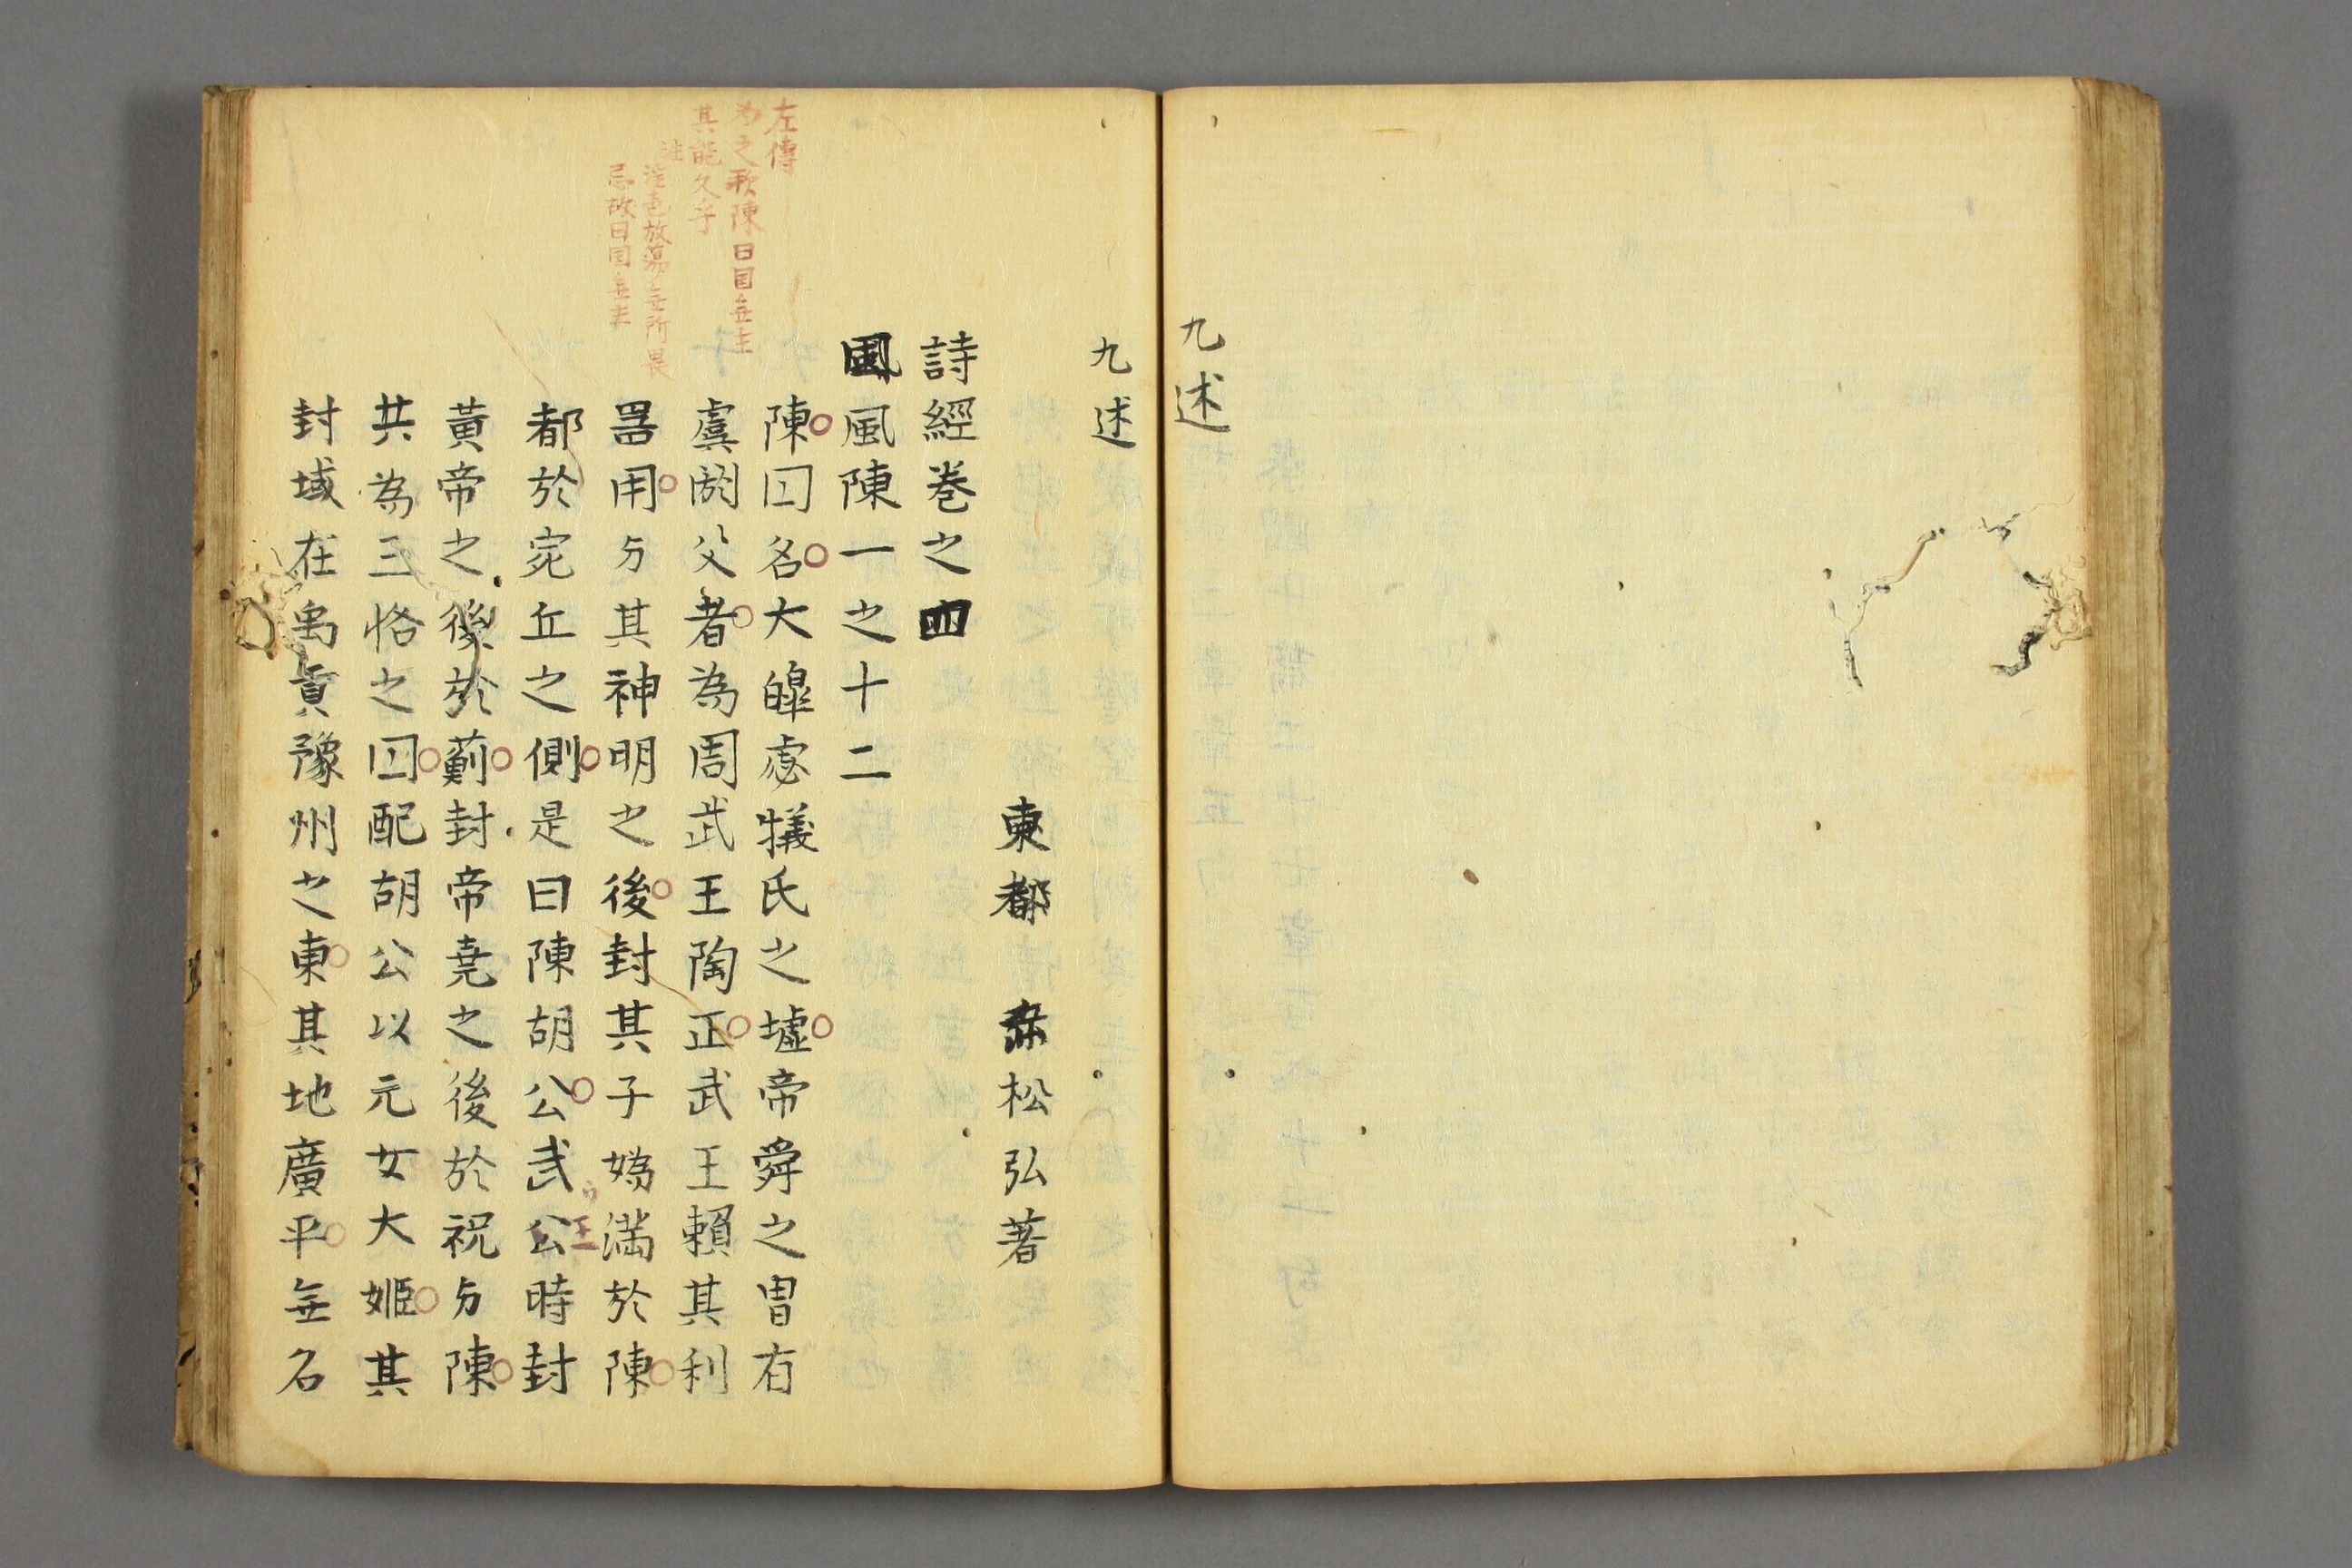 九述
九述
東都 赤松弘著
詩經巻之四
國風陳一之十二
陳囯名大皥虙犧氏之墟帝舜之冑有
虞閼父者為周武王陶正武王賴其利
噐用与其神明之後封其子媯満於陳
都於宛丘之側是曰陳胡公武公時封
王
黃帝之後於薊封帝堯之後於祝与陳
共為三恪之囯配胡公以元女大姬其
封域在禹貢豫州之東其地廣平無名
左傳
為之歌陳曰国無主
其能久乎
注
淫声放蕩無所畏
忌故曰国無主